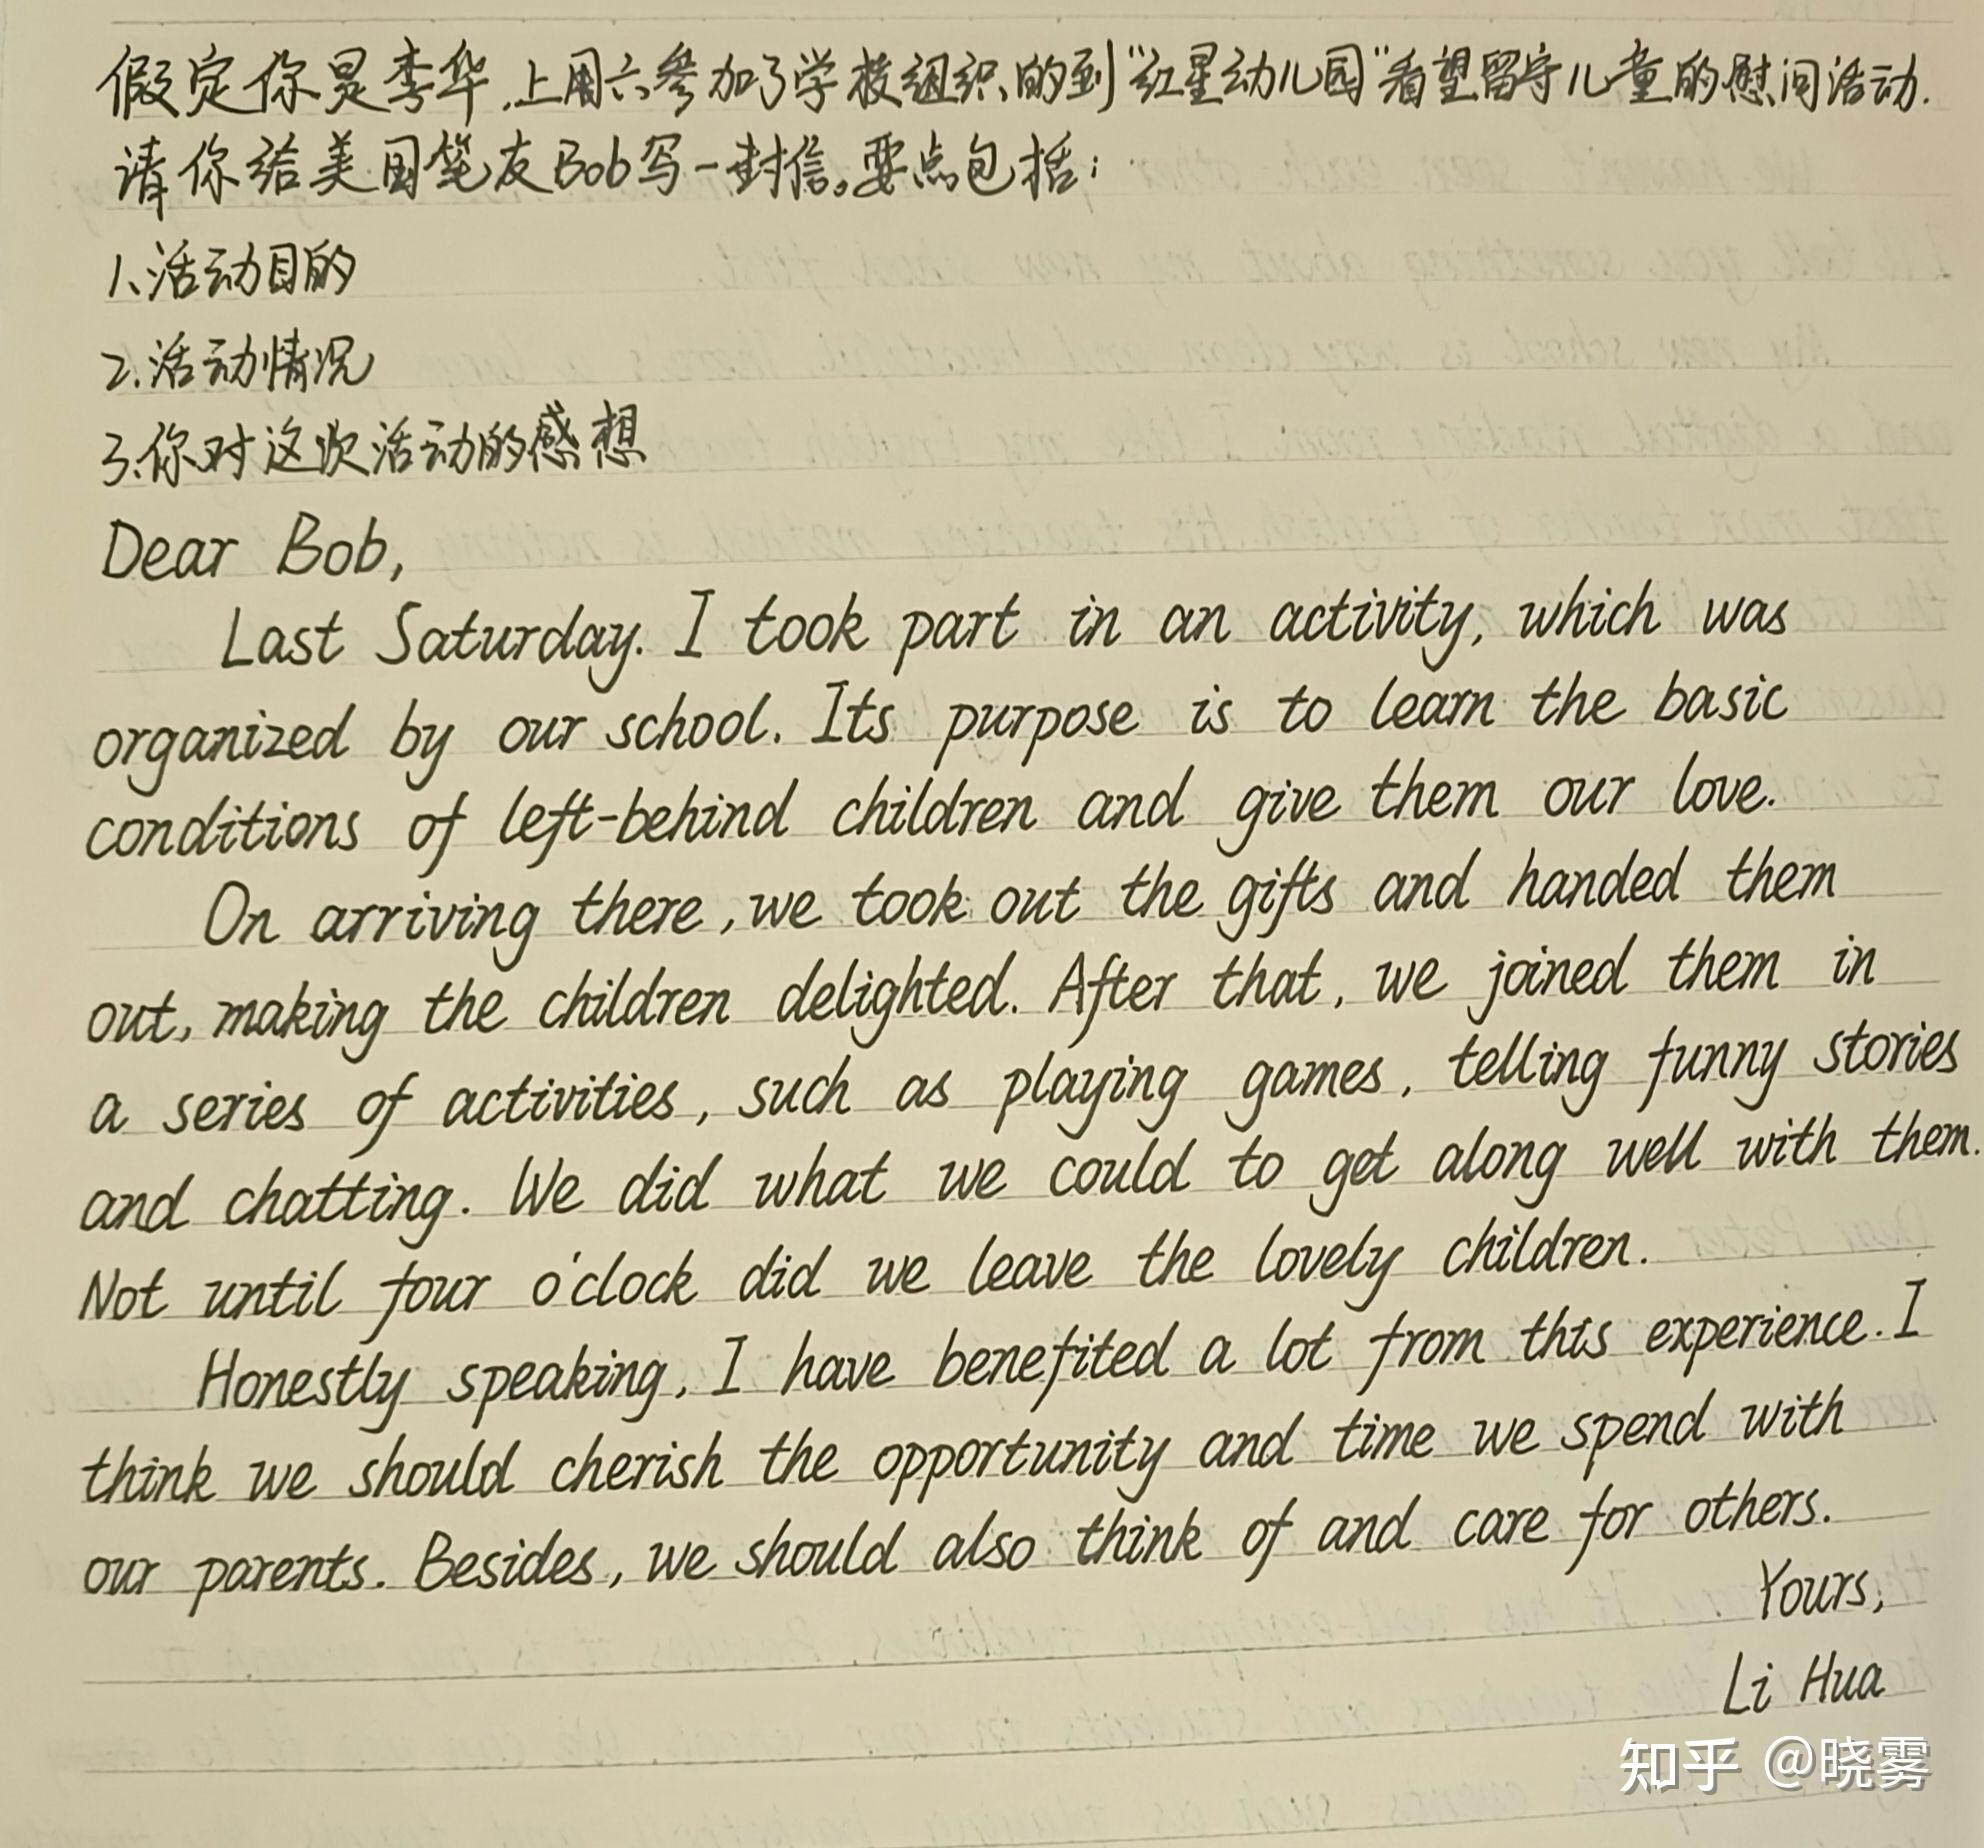 假定你是李华,上周六参加了学校组织的到"红星幼儿园"看望留守儿童的慰问活动.
请你给美国笔友Bob写一封信。要点包括:
1.活动目的
2.活动情况
3.你对这次活动的感想
Dear Bob,
Last Saturday. I took part in an activity, which was
organized by our school. Its purpose is to learn the basic
conditions of left-behind children and give them our love.
On arriving there, we took out the gifts and handed them
out, making the children delighted. After that, we joined them in
a series of activities, such as playing games, telling funny stories
and chatting. We did what we could to get along well with them.
Not until four o'clock did we leave the lovely children.
Honestly speaking, I have benefited a lot from this experience. I
think we should cherish the opportunity and time we spend with
our parents. Besides, we should also think of and care for others.
Yours,
Li Hua
知乎 @晓雾